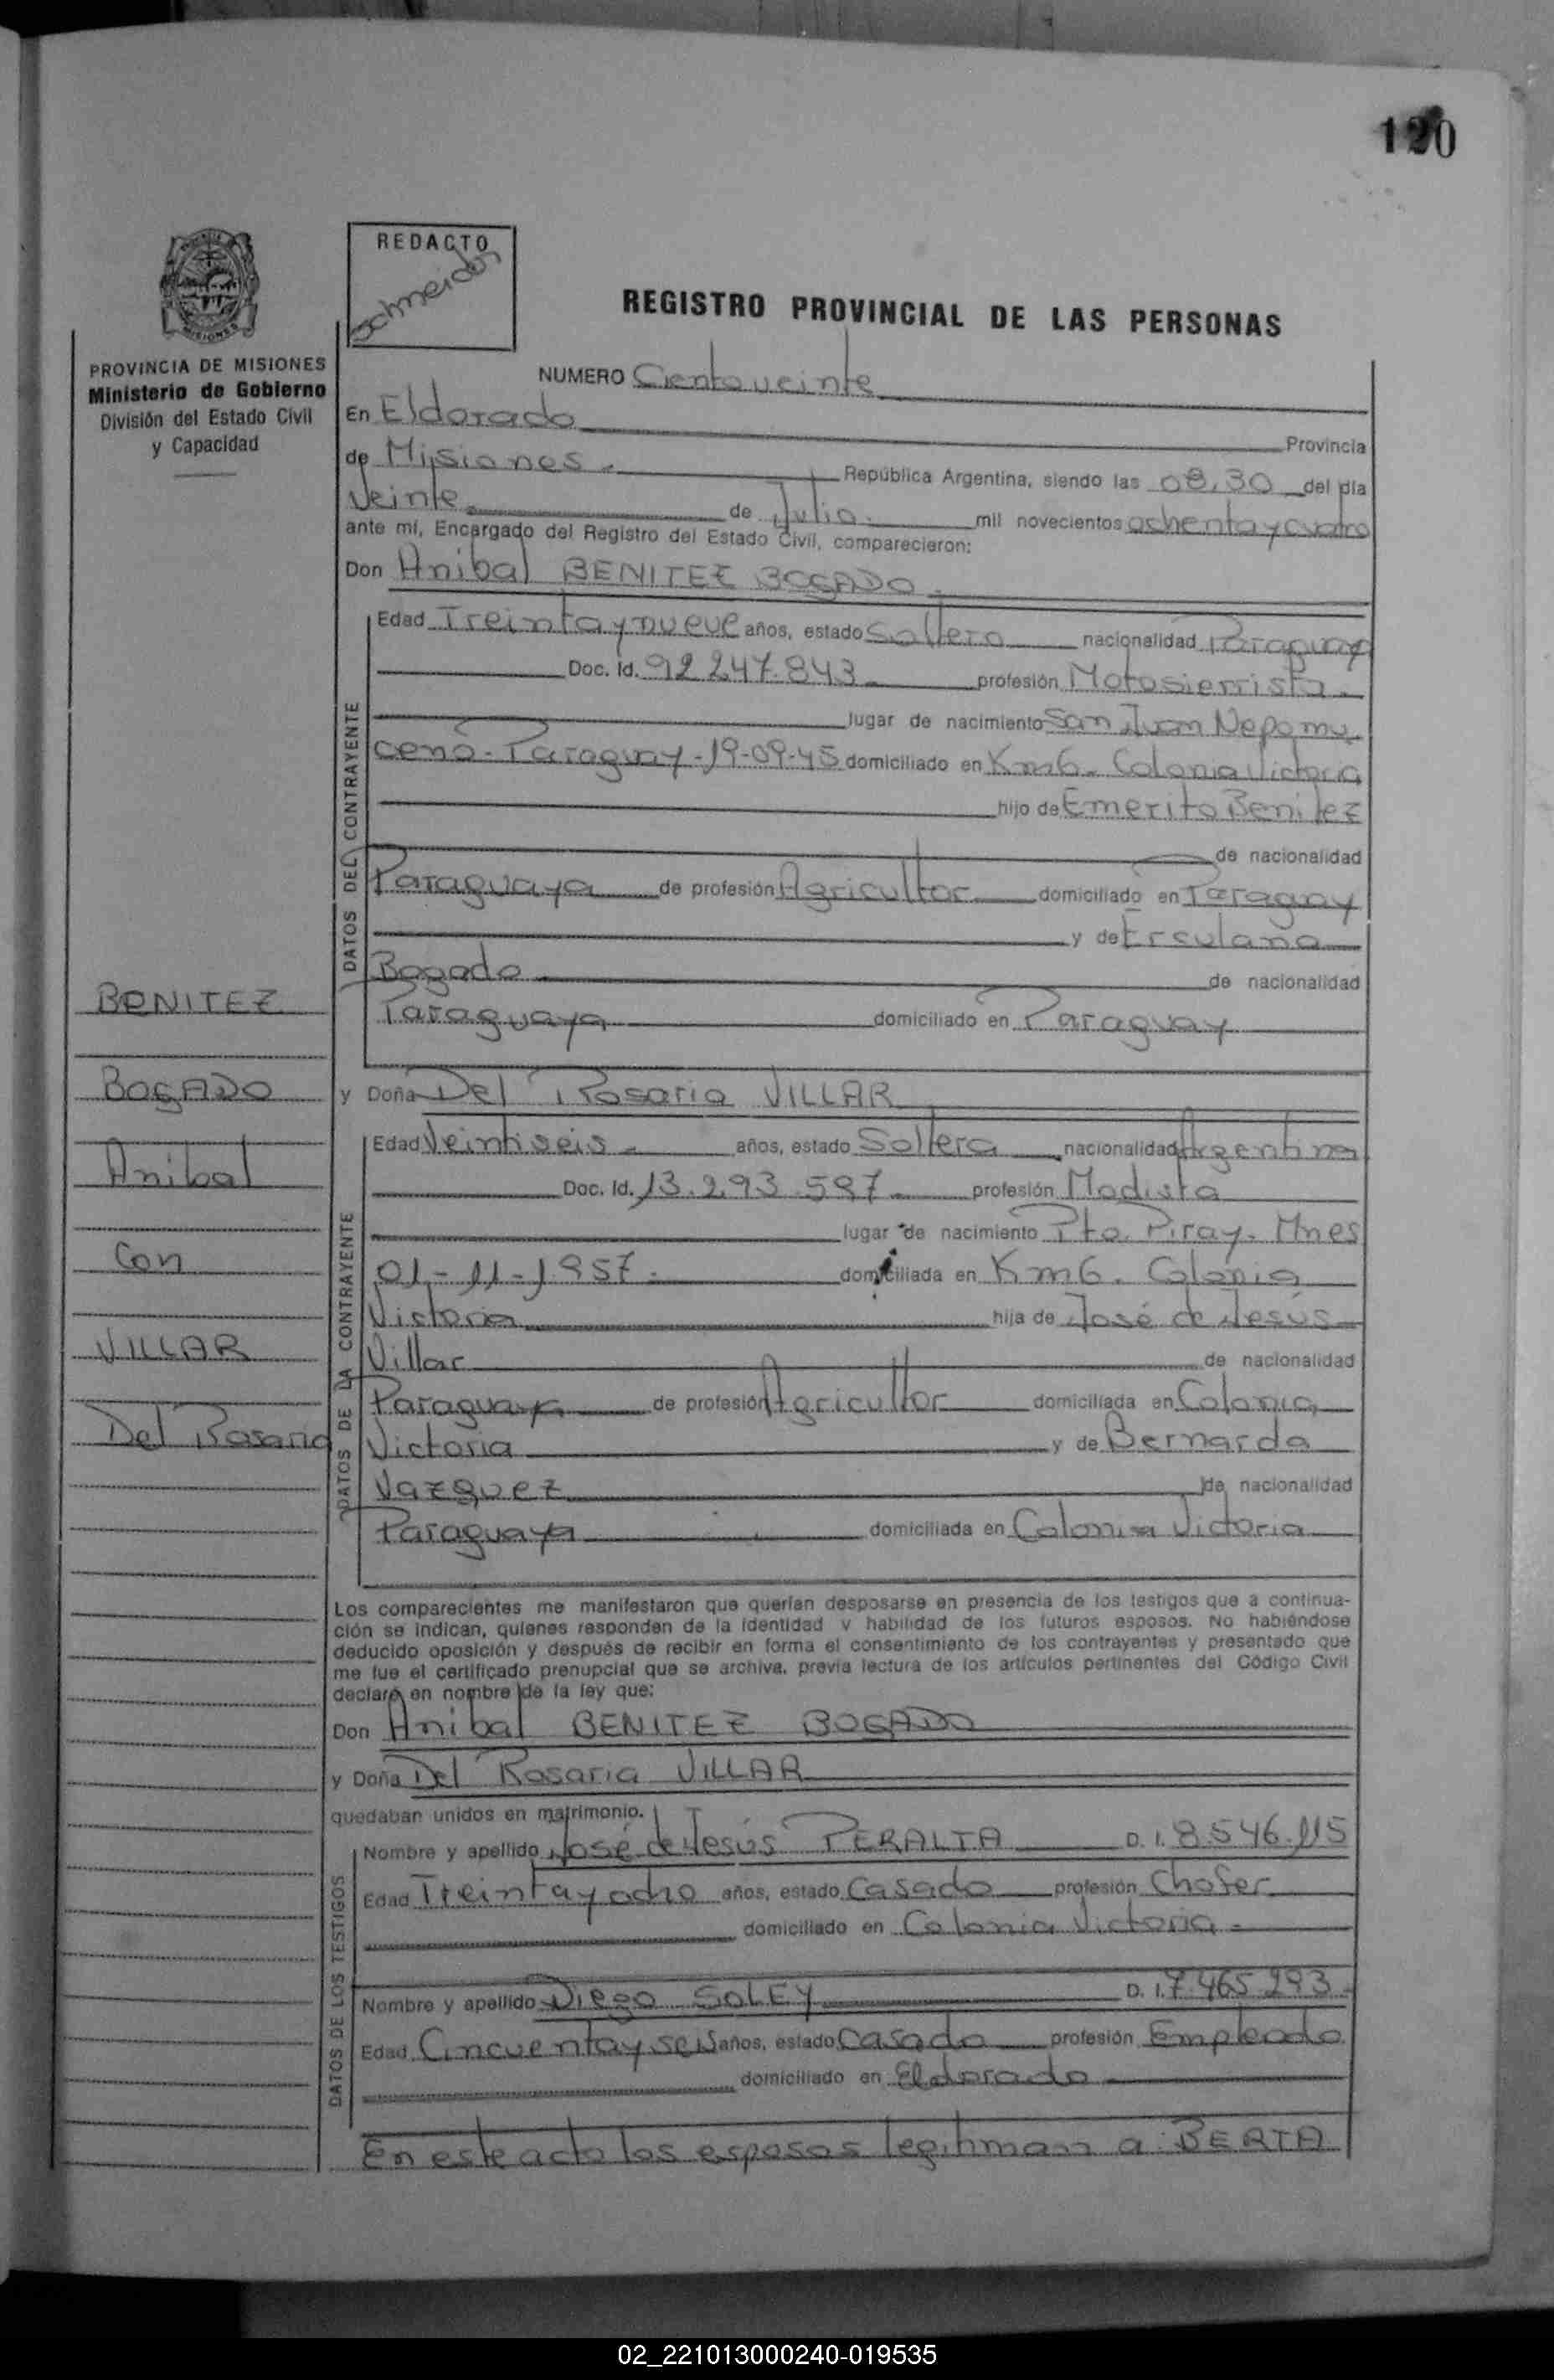 120
REDACTO
Schneider
REGISTRO PROVINCIAL DE LAS PERSONAS
PROVINCIA DE MISIONES
Ministerio de Gobierno
División del Estado Civil
y Capacidad
NUMERO Ciento veinte
En Eldorado Provincia
de Misiones.- República Argentina, siendo las 08,30 del día
Veinte de Julio.- mil novecientos ochenta y cuatro
ante mí, Encargado del Registro del Estado Civil, comparecieron:
Don Anibal BENITEZ BOGADO.
DATOS DEL CONTRAYENTE
Edad Treinta y nueve años, estado Soltero nacionalidad Paraguay
Doc. Id. 92 247.843 profesión Motosierrista.-
lugar de nacimiento San Juan Nepomu
ceno - Paraguay - 19-09-45 domiciliado en Km6. Colonia Victoria
hijo de Emerito Benitez
de nacionalidad
Paraguaya de profesión Agricultor domiciliado en Paraguay
y de Ersulana
Bogado de nacionalidad
Paraguaya domiciliado en Paraguay
BENITEZ
BOGADO
Anibal
Con
VILLAR
Del Rosario
y Doña Del Rosaria VILLAR
DATOS DE LA CONTRAYENTE
Edad Veintiseis.- años, estado Soltera nacionalidad Argentina
Doc. Id. 13.293.597 profesión Modista
lugar de nacimiento Pto. Piray. Mnes
01-11-1957.- domiciliada en Km6. Colonia
Victoria hija de José de Jesús
Villar de nacionalidad
Paraguaya de profesión Agricultor domiciliada en Colonia
Victoria y de Bernarda
Vazquez de nacionalidad
Paraguaya domiciliada en Colonia Victoria
Los comparecientes me manifestaron que querían desposarse en presencia de los testigos que a continua-
ción se indican, quienes responden de la identidad y habilidad de los futuros esposos. No habiéndose
deducido oposición y después de recibir en forma el consentimiento de los contrayentes y presentado que
me fue el certificado prenupcial que se archiva, previa lectura de los artículos pertinentes del Código Civil
declaré en nombre de la ley que:
Don Anibal BENITEZ BOGADO
y Doña Del Rosaria VILLAR
quedaban unidos en matrimonio.
DATOS DE LOS TESTIGOS
Nombre y apellido José de Jesús PERALTA D. I. 8.546.115
Edad Treinta y ocho años, estado Casado profesión Chofer
domiciliado en Colonia Victoria.-
Nombre y apellido Diego SOLEY D. I. 7.465 293.-
Edad Cincuenta y seis años, estado Casado profesión Empleado
domiciliado en Eldorado
En este acto los esposos legitiman a BERTA
02_221013000240-019535